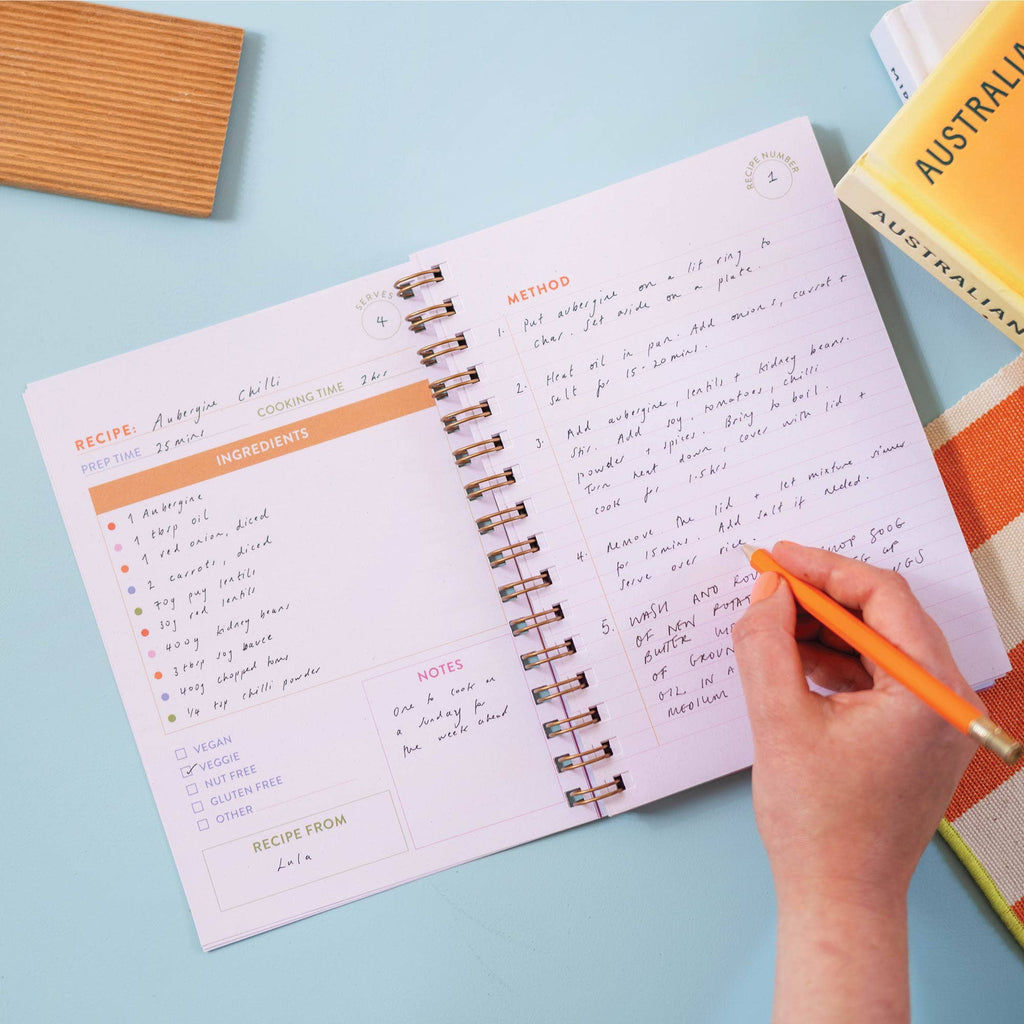 SERVES
4
RECIPE: Aubergine Chilli
PREP TIME 25 mins COOKING TIME 2 hrs
INGREDIENTS
1 Aubergine
1 tbsp oil
1 red onion, diced
2 carrots, diced
70g puy lentils
30g red lentils
400g kidney beans
3 tbsp soy sauce
400g chopped toms
1/4 tsp chilli powder
VEGAN
✓ VEGGIE
NUT FREE
GLUTEN FREE
OTHER
NOTES
One to cook on
a Sunday for
the week ahead
RECIPE FROM
Lula
RECIPE NUMBER
1
METHOD
1. Put aubergine on a lit ring to
char. Set aside on a plate.
2. Heat oil in pan. Add onions, carrot +
salt for 15-20 mins.
3. Add aubergine, lentils + kidney beans.
Stir. Add soy, tomatoes, chilli
powder + spices. Bring to boil
Turn heat down, cover with lid +
cook for 1.5hrs
4. Remove the lid + let mixture simmer
for 15mins. Add salt if needed.
Serve over rice.
5. WASH AND 500G
OF NEW
BUTTER UP
OF
OIL IN A
MEDIUM
AUSTRALIA
AUSTRALIAN